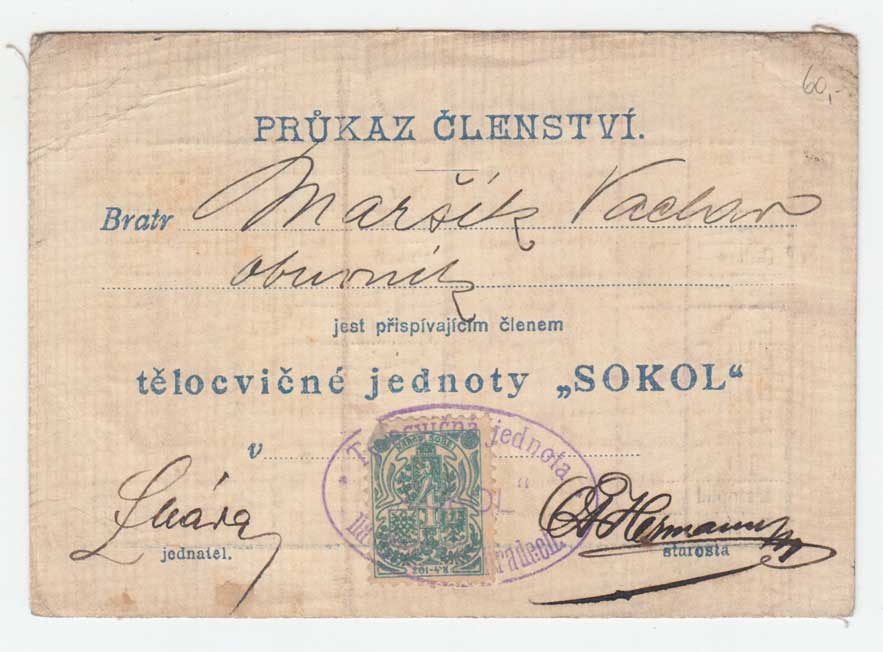 60,-
PRŮKAZ ČLENSTVÍ.
Bratr Maršík Václav
obuvník
jest přispívajícím členem
tělocvičné jednoty „SOKOL“
v
Tělocvičná jednota
jednatel.
Hermann
starosta